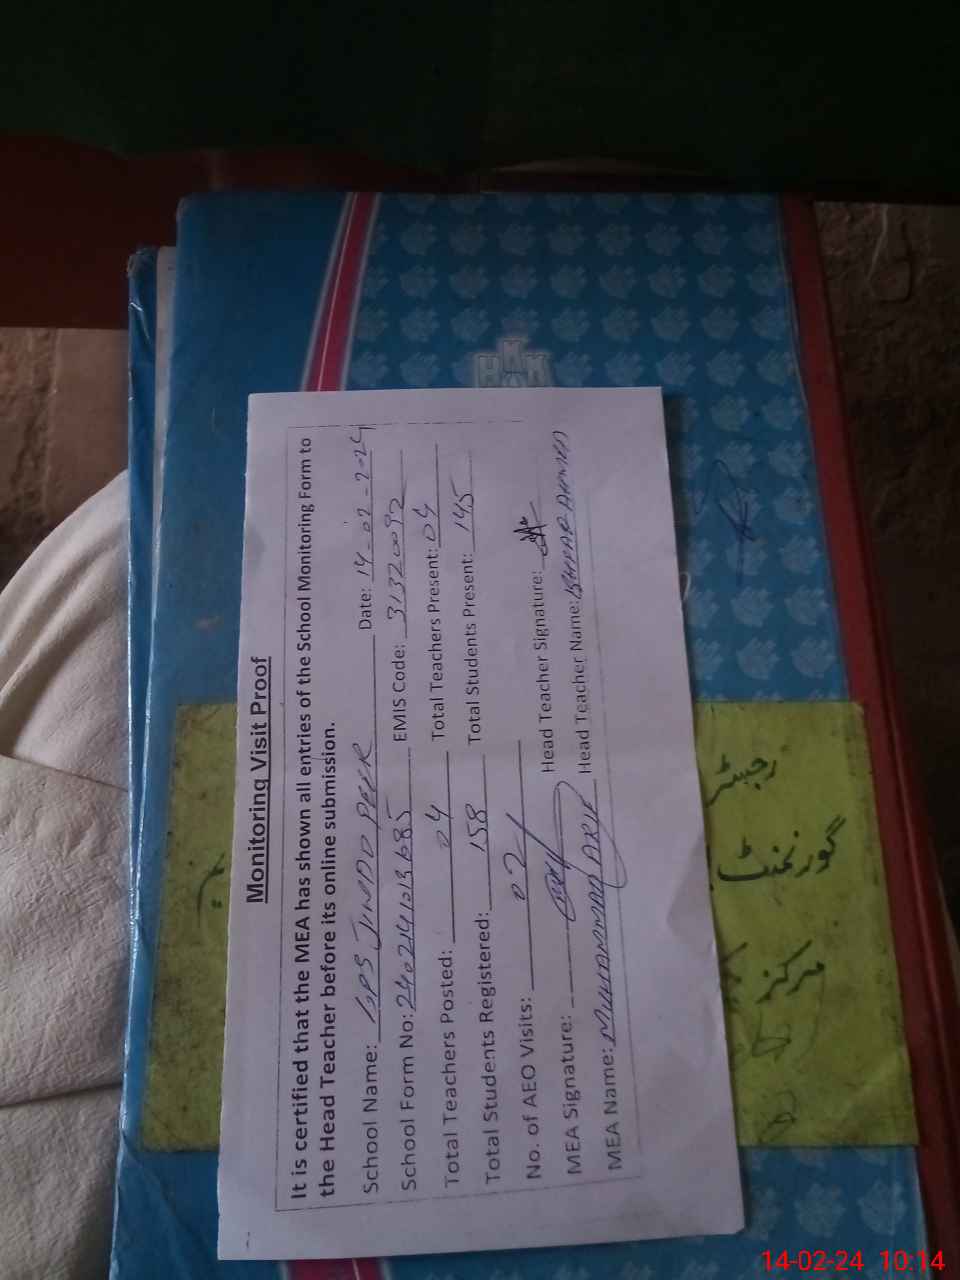 Monitoring Visit Proof
It is certified that the MEA has shown all entries of the School Monitoring Form to
the Head Teacher before its online submission.
School Name: GPS JUNDD PEER Date: 14-02-2024
School Form No: 240214101313685 EMIS Code: 31320092
Total Teachers Posted: 04 Total Teachers Present: 04
Total Students Registered: 158 Total Students Present: 145
No. of AEO Visits: 02
MEA Signature: Head Teacher Signature:
MEA Name: MUHAMMAD ARIF Head Teacher Name: AHMAD
رجسٹر
گورنمنٹ
مرکز
14-02-24 10:14